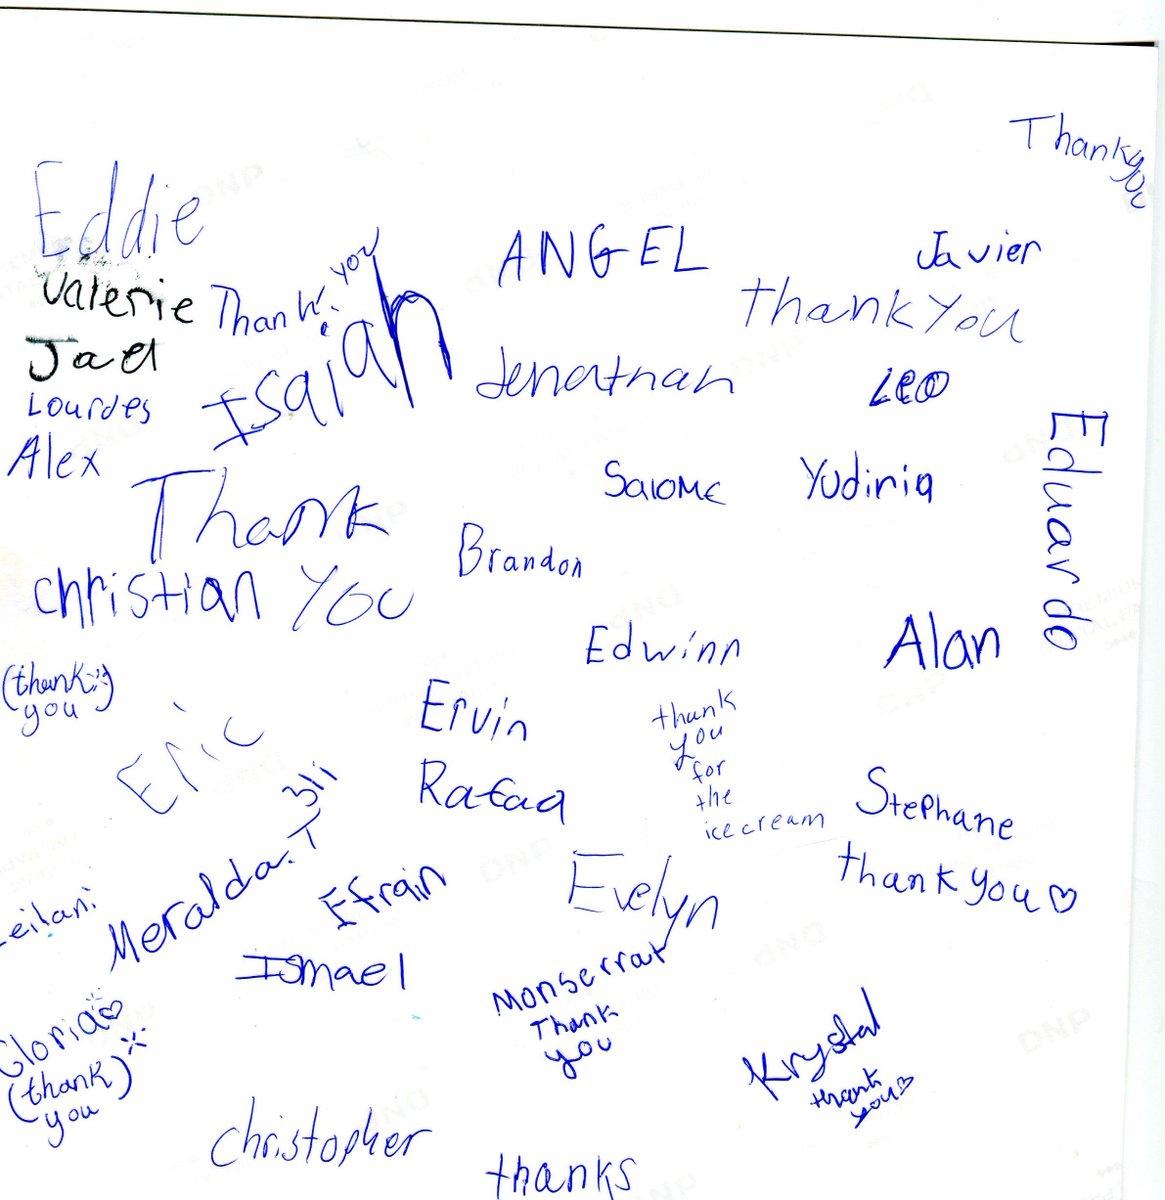 Thank you
Eddie
Valerie
Jael
Lourdes
Alex
Thank you
Isaiah
ANGEL
Javier
Thank You
Jenathan
LEO
Eduardo
Salome
Yudiria
Thank
You
Brandon
christian
(thank
you)
Edwinn
Alan
Eric
Ervin
Rafaa
thank
you
for
the
ice cream
Stephane
thank you
Leilani
Meralda. T
Efrain
Evelyn
Ismael
Monserrat
Thank
you
Gloria
(thank
you)
Krystal
thank
you
christopher
thanks
DNP